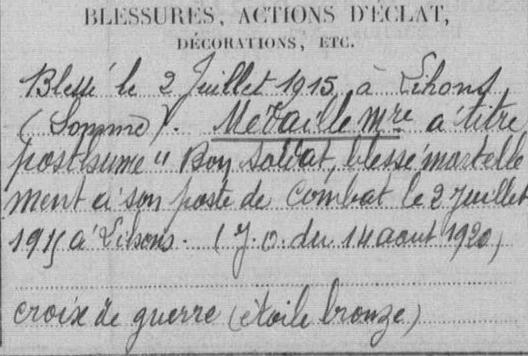 BLESSURES, ACTIONS D'ÉCLAT,
DÉCORATIONS, ETC.
Blessé le 2 Juillet 1915 à Lihons
(Somme). Médaille Mre à titre
posthume "Bon soldat, blessé mortelle
ment à son poste de combat le 2 juillet
1915 à Lihons. (J. O. du 14 aout 1920)
croix de guerre (étoile bronze)